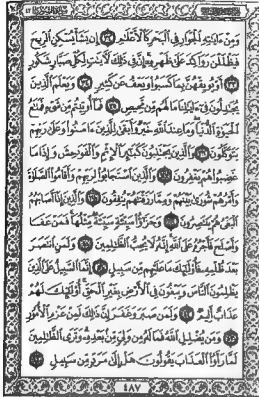 وَمِنْ ءَايَٰتِهِ ٱلْجَوَارِ فِى ٱلْبَحْرِ كَٱلْأَعْلَٰمِ ٣٢ إِن يَشَأْ يُسْكِنِ ٱلرِّيحَ
فَيَظْلَلْنَ رَوَاكِدَ عَلَىٰ ظَهْرِهِۦٓ إِنَّ فِى ذَٰلِكَ لَءَايَٰتٍ لِّكُلِّ صَبَّارٍ شَكُورٍ
٣٣ أَوْ يُوبِقْهُنَّ بِمَا كَسَبُوا۟ وَيَعْفُ عَن كَثِيرٍ ٣٤ وَيَعْلَمَ ٱلَّذِينَ
يُجَٰدِلُونَ فِىٓ ءَايَٰتِنَا مَا لَهُم مِّن مَّحِيصٍ ٣٥ فَمَآ أُوتِيتُم مِّن شَىْءٍ فَمَتَٰعُ
ٱلْحَيَوٰةِ ٱلدُّنْيَا وَمَا عِندَ ٱللَّهِ خَيْرٌ وَأَبْقَىٰ لِلَّذِينَ ءَامَنُوا۟ وَعَلَىٰ رَبِّهِمْ
يَتَوَكَّلُونَ ٣٦ وَٱلَّذِينَ يَجْتَنِبُونَ كَبَٰٓئِرَ ٱلْإِثْمِ وَٱلْفَوَٰحِشَ وَإِذَا مَا
غَضِبُوا۟ هُمْ يَغْفِرُونَ ٣٧ وَٱلَّذِينَ ٱسْتَجَابُوا۟ لِرَبِّهِمْ وَأَقَامُوا۟ ٱلصَّلَوٰةَ
وَأَمْرُهُمْ شُورَىٰ بَيْنَهُمْ وَمِمَّا رَزَقْنَٰهُمْ يُنفِقُونَ ٣٨ وَٱلَّذِينَ إِذَآ أَصَابَهُمُ
ٱلْبَغْىُ هُمْ يَنتَصِرُونَ ٣٩ وَجَزَٰٓؤُا۟ سَيِّئَةٍ سَيِّئَةٌ مِّثْلُهَا فَمَنْ عَفَا
وَأَصْلَحَ فَأَجْرُهُۥ عَلَى ٱللَّهِ إِنَّهُۥ لَا يُحِبُّ ٱلظَّٰلِمِينَ ٤٠ وَلَمَنِ ٱنتَصَرَ
بَعْدَ ظُلْمِهِۦ فَأُو۟لَٰٓئِكَ مَا عَلَيْهِم مِّن سَبِيلٍ ٤١ إِنَّمَا ٱلسَّبِيلُ عَلَى ٱلَّذِينَ
يَظْلِمُونَ ٱلنَّاسَ وَيَبْغُونَ فِى ٱلْأَرْضِ بِغَيْرِ ٱلْحَقِّ أُو۟لَٰٓئِكَ لَهُمْ
عَذَابٌ أَلِيمٌ ٤٢ وَلَمَن صَبَرَ وَغَفَرَ إِنَّ ذَٰلِكَ لَمِنْ عَزْمِ ٱلْأُمُورِ
٤٣ وَمَن يُضْلِلِ ٱللَّهُ فَمَا لَهُۥ مِن وَلِىٍّ مِّنۢ بَعْدِهِۦ وَتَرَى ٱلظَّٰلِمِينَ
لَمَّا رَأَوُا۟ ٱلْعَذَابَ يَقُولُونَ هَلْ إِلَىٰ مَرَدٍّ مِّن سَبِيلٍ ٤٤
٤٨٧